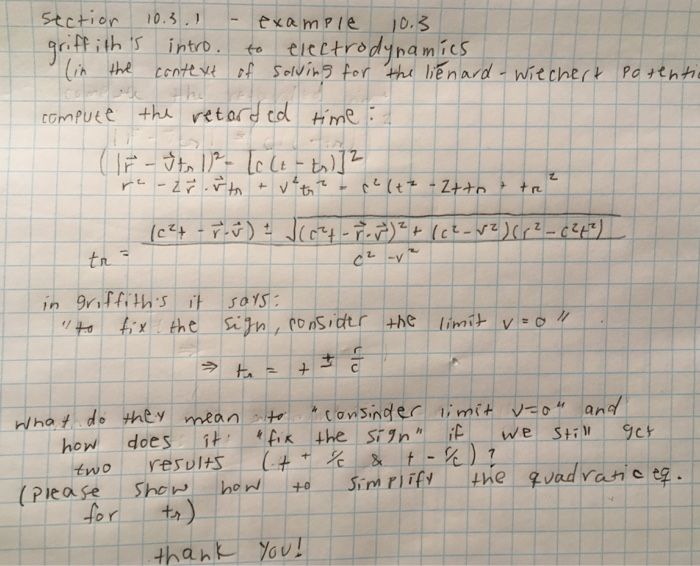 section 10.3.1 - example 10.3
griffith's intro. to electrodynamics
(in the context of solving for the liénard-wiechert potenti
compute the retarded time:
(|r⃗ - v⃗tᵣ|)² = [c(t - tᵣ)]²
r² - 2r⃗·v⃗tᵣ + v²tᵣ² = c²(t² - 2ttᵣ + tᵣ²
tᵣ = (c²t - r⃗·v⃗) ± √((c²t - r⃗·v⃗)² + (c² - v²)(r² - c²t²)) / c² - v²
in griffith's it says:
"to fix the sign, consider the limit v = 0"
⇒ tᵣ = t ± r/c
what do they mean to "consinder limit v=0" and
how does it "fix the sign" if we still get
two results (t + r/c & t - r/c)?
(please show how to simplify the quadratic eq.
for tᵣ)
thank you!